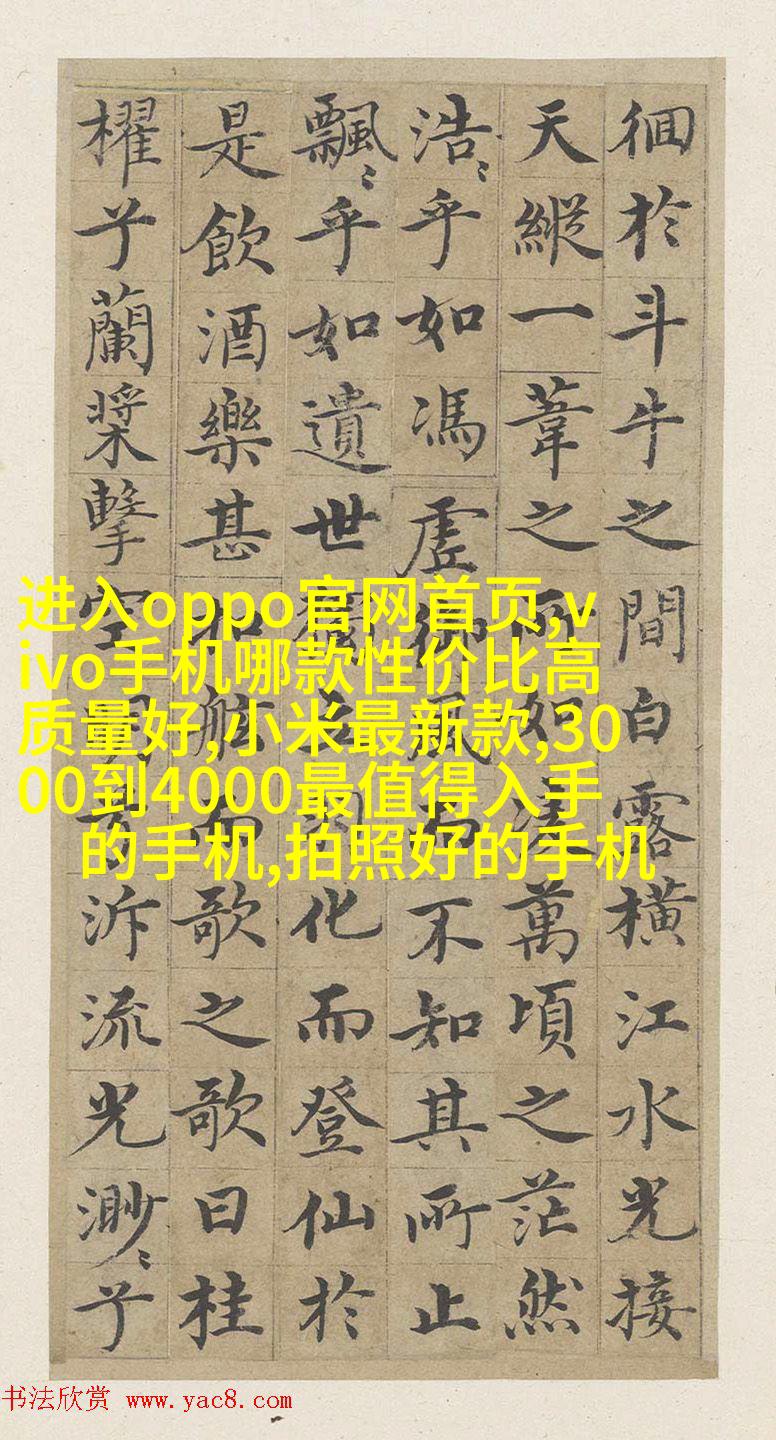 徊於斗牛之間白露橫江水光接
天縱一葦之所如淩萬頃之茫然
浩〻乎如馮虛御風而不知其所止
飄〻乎如遺世獨立羽化而登仙於
是飲酒樂甚扣舷而歌之歌曰桂
櫂兮蘭槳擊空明兮泝流光渺〻兮
进入oppo官网首页,v
ivo手机哪款性价比高
质量好,小米最新款,30
00到4000最值得入手
的手机,拍照好的手机
书法欣赏 www.yac8.com